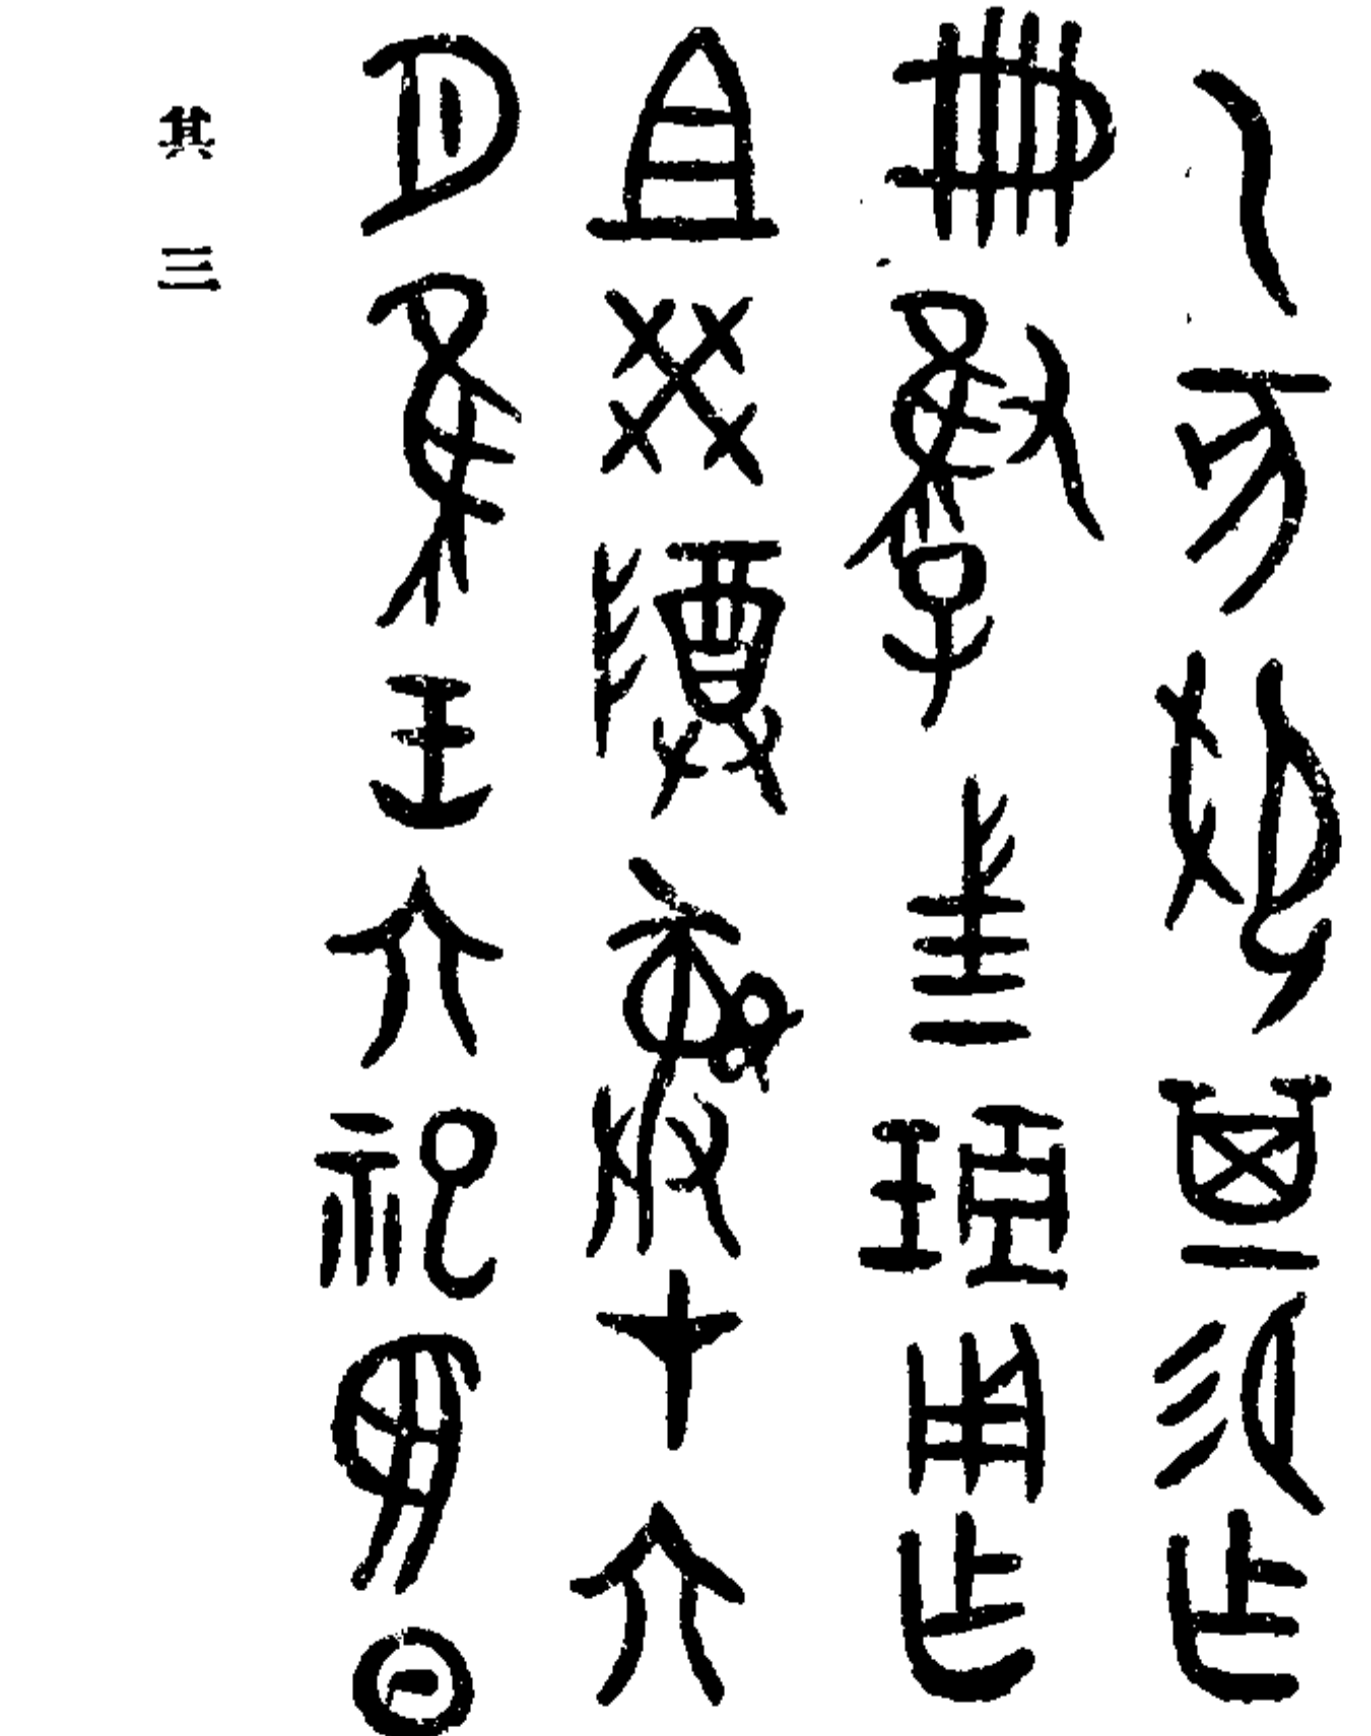 乙亥邲其易乍
冊一用乍
且癸尊彝才六
月隹王六祀翌日
其三